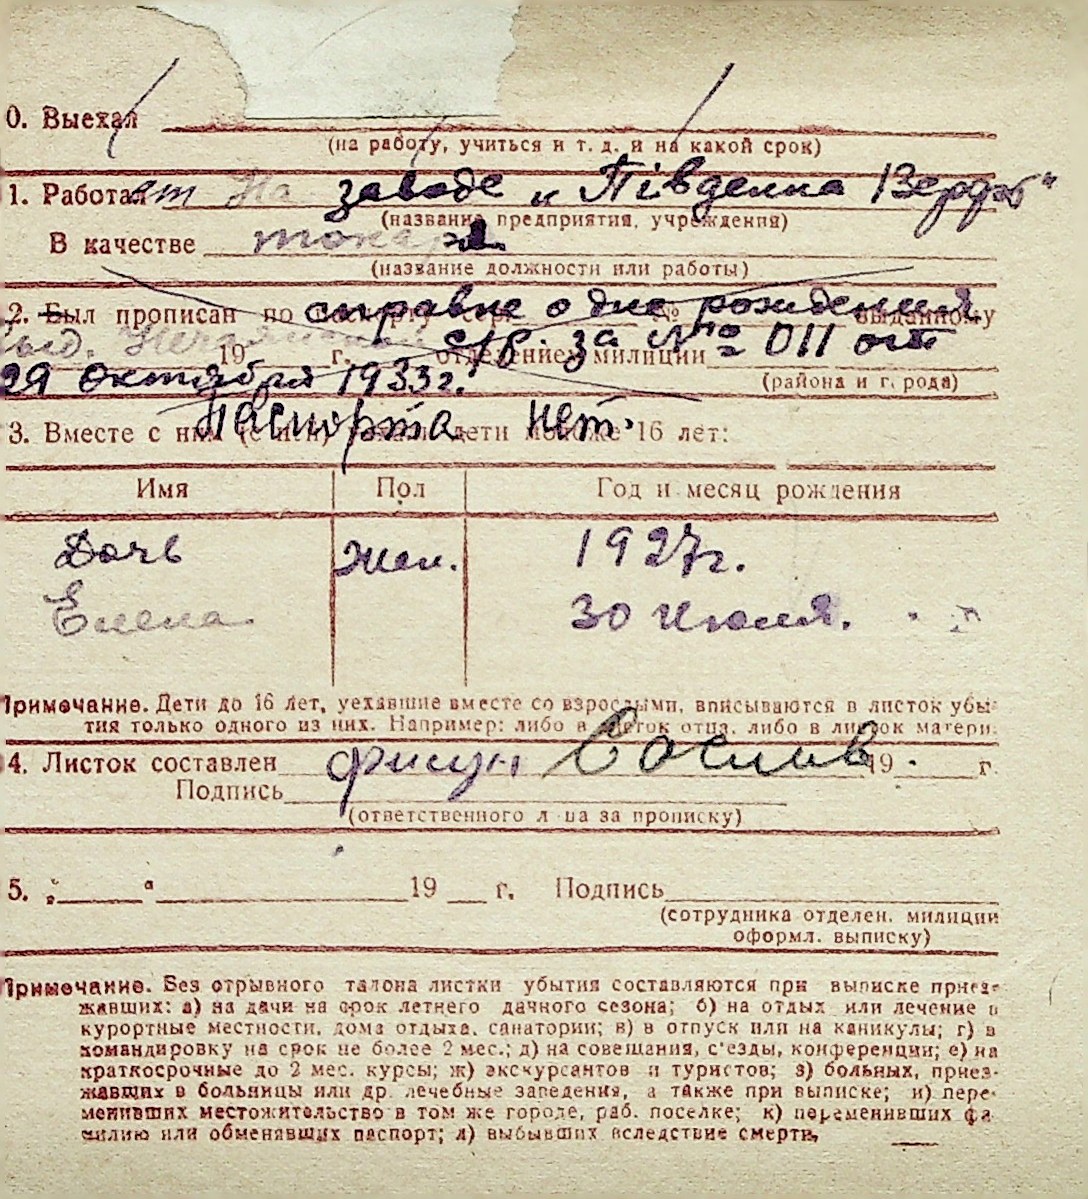 0. Выехал
(на работу, учиться и т. д. и на какой срок)
1. Работает На заводе „Південна Верфь"
(название предприятия, учреждения)
В качестве токаря
(название должности или работы)
2. Был прописан по справке о дне рождения выданному
19 г. отделением милиции за № 011 от
29 октября 1933 г.
(района и города)
Паспорта нет.
3. Вместе с ним дети моложе 16 лет:
Имя Пол Год и месяц рождения
Дочь Жен. 1927 г.
Елена 30 июля.
Примечание. Дети до 16 лет, уехавшие вместе со взрослыми, вписываются в листок убы-
тия только одного из них. Например: либо в листок отца, либо в листок матери.
4. Листок составлен 19 г.
Подпись
(ответственного лица за прописку)
5. „ " 19 г. Подпись
(сотрудника отделен. милиции
оформл. выписку)
Примечание. Без отрывного талона листки убытия составляются при выписке приез-
жавших: а) на дачи на срок летнего дачного сезона; б) на отдых или лечение в
курортные местности, дома отдыха, санатории; в) в отпуск или на каникулы; г) в
командировку на срок не более 2 мес.; д) на совещания, с'езды, конференции; е) на
краткосрочные до 2 мес. курсы; ж) экскурсантов и туристов; з) больных, приез-
жавших в больницы или др. лечебные заведения, а также при выписке; и) пере-
менивших местожительство в том же городе, раб. поселке; к) переменивших фа-
милию или обменявших паспорт; л) выбывших вследствие смерти.